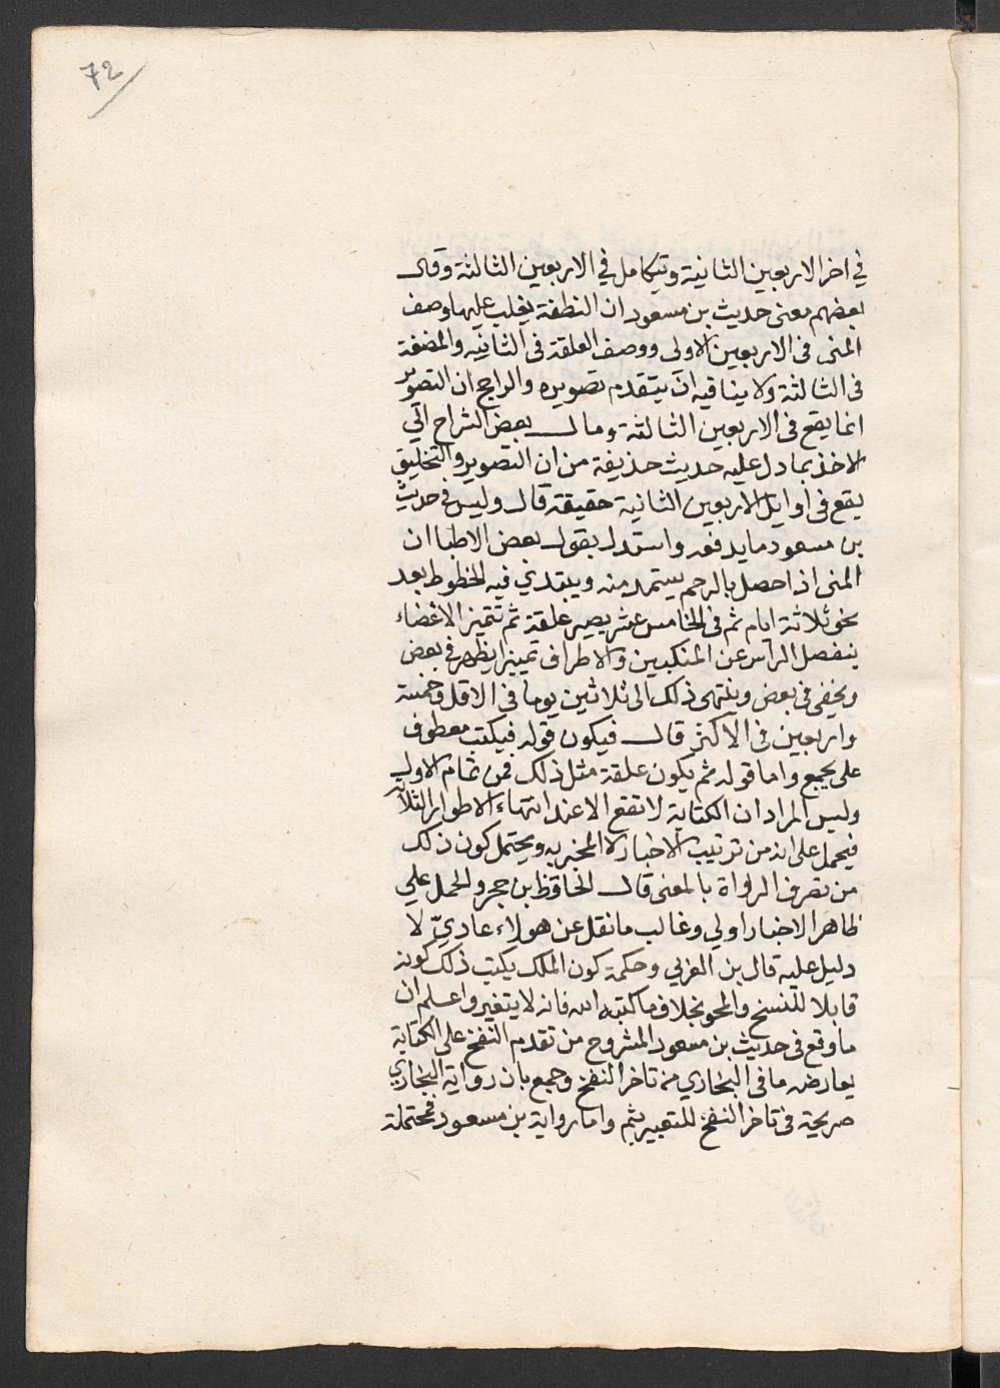 72
في اخر الاربعين الثانية ويتكامل في الاربعين الثالثة وقال
بعضهم معنى حديث بن مسعود ان النطفة يغلب عليها وصف
المنى فى الاربعين الاولى ووصف العلقة فى الثانيه والمضغة
فى الثالثة ولا ينافيه ان يتقدم تصويره والراجح ان التصوير
انما يقع فى الاربعين الثالثة ومال بعض الشراح الي
الاخذ بما دل عليه حديث حذيفة من ان التصوير والتخليق
يقع فى اوايل الاربعين الثانية حقيقة قال وليس في حديث
بن مسعود ما يدفعه واستدل بقول بعض الاطبا ان
المنى اذا حصل بالرحم يستمد منه ويبتدئ فيه الخطوط بعد
نحو ثلاثة ايام ثم فى الخامس عشر يصير علقة ثم تتميز الاعضاء
ينفصل الرأس عن المنكبين والاطراف تمييزا يظهر في بعض
ويخفى فى بعض وينتهى ذلك الى ثلاثين يوما فى الاقل وخمسة
واربعين فى الاكثر قال فيكون قوله فيكتب معطوف
على يجمع واما قوله ثم يكون علقة مثل ذلك فمن تمام الاول
وليس المراد ان الكتابة لا تقع الا عند انتهاء الاطوار الثلاثه
فيحمل على انه من ترتيب الاخبار لا المخبر به ويحتمل كون ذلك
من تصرف الرواة بالمعنى قال الحافظ بن حجر والحمل علي
ظاهر الاخبار اولي وغالب ما نقل عن هولاء عاديّ لا
دليل عليه قال بن العربي وحكمة كون الملك يكتب ذلك كونه
قابلا للنسخ والمحو بخلاف ما كتبه الله فانه لا يتغير واعلم ان
ما وقع فى حديث بن مسعود المشروح من تقدم النفخ على الكتابة
يعارضه ما فى البخاري من تاخر النفخ وجمع بان رواية البخاري
صريحة فى تاخر النفخ للتعبير بثم واما رواية بن مسعود فمحتملة